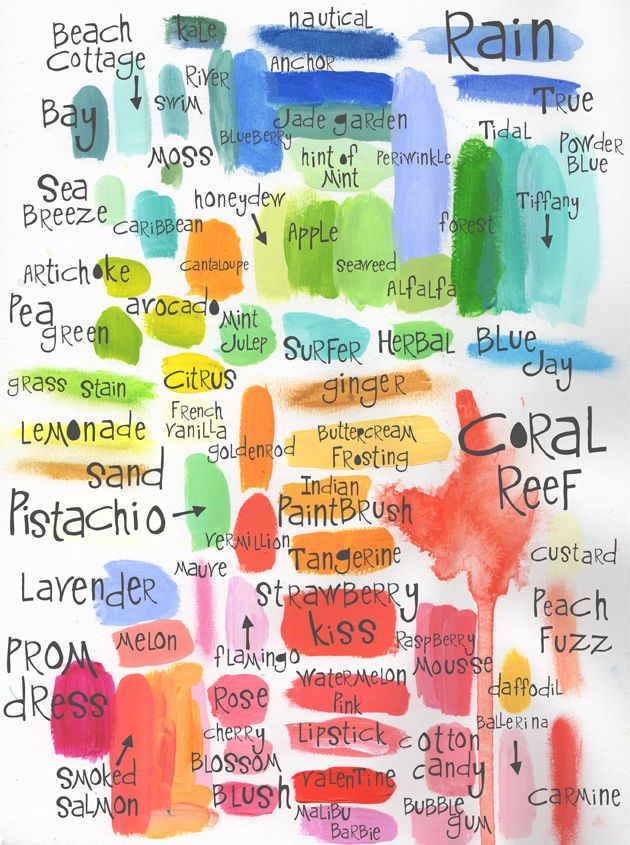 Beach
Cottage
kale
nautical
Rain
Anchor
Bay
Swim
River
BlueBerry
Jade garden
True
Moss
hint of
Mint
Periwinkle
Tidal
Powder
Blue
Sea
Breeze
Caribbean
honeydew
Apple
forest
Tiffany
Cantaloupe
Seaweed
Alfalfa
Artichoke
Pea
green
avocado
Mint
Julep
Surfer
Herbal
Blue
Jay
grass stain
Citrus
ginger
Lemonade
French
Vanilla
goldenrod
Buttercream
Frosting
Coral
Reef
Sand
Indian
PaintBrush
Pistachio
Vermillion
Tangerine
custard
Lavender
Mauve
Strawberry
kiss
Peach
Fuzz
Melon
flamingo
Raspberry
Mousse
Prom
dress
Rose
Watermelon
Pink
daffodil
cherry
Blossom
Lipstick
cotton
candy
Ballerina
Smoked
Salmon
Blush
Valentine
Carmine
Malibu
Barbie
Bubble
gum